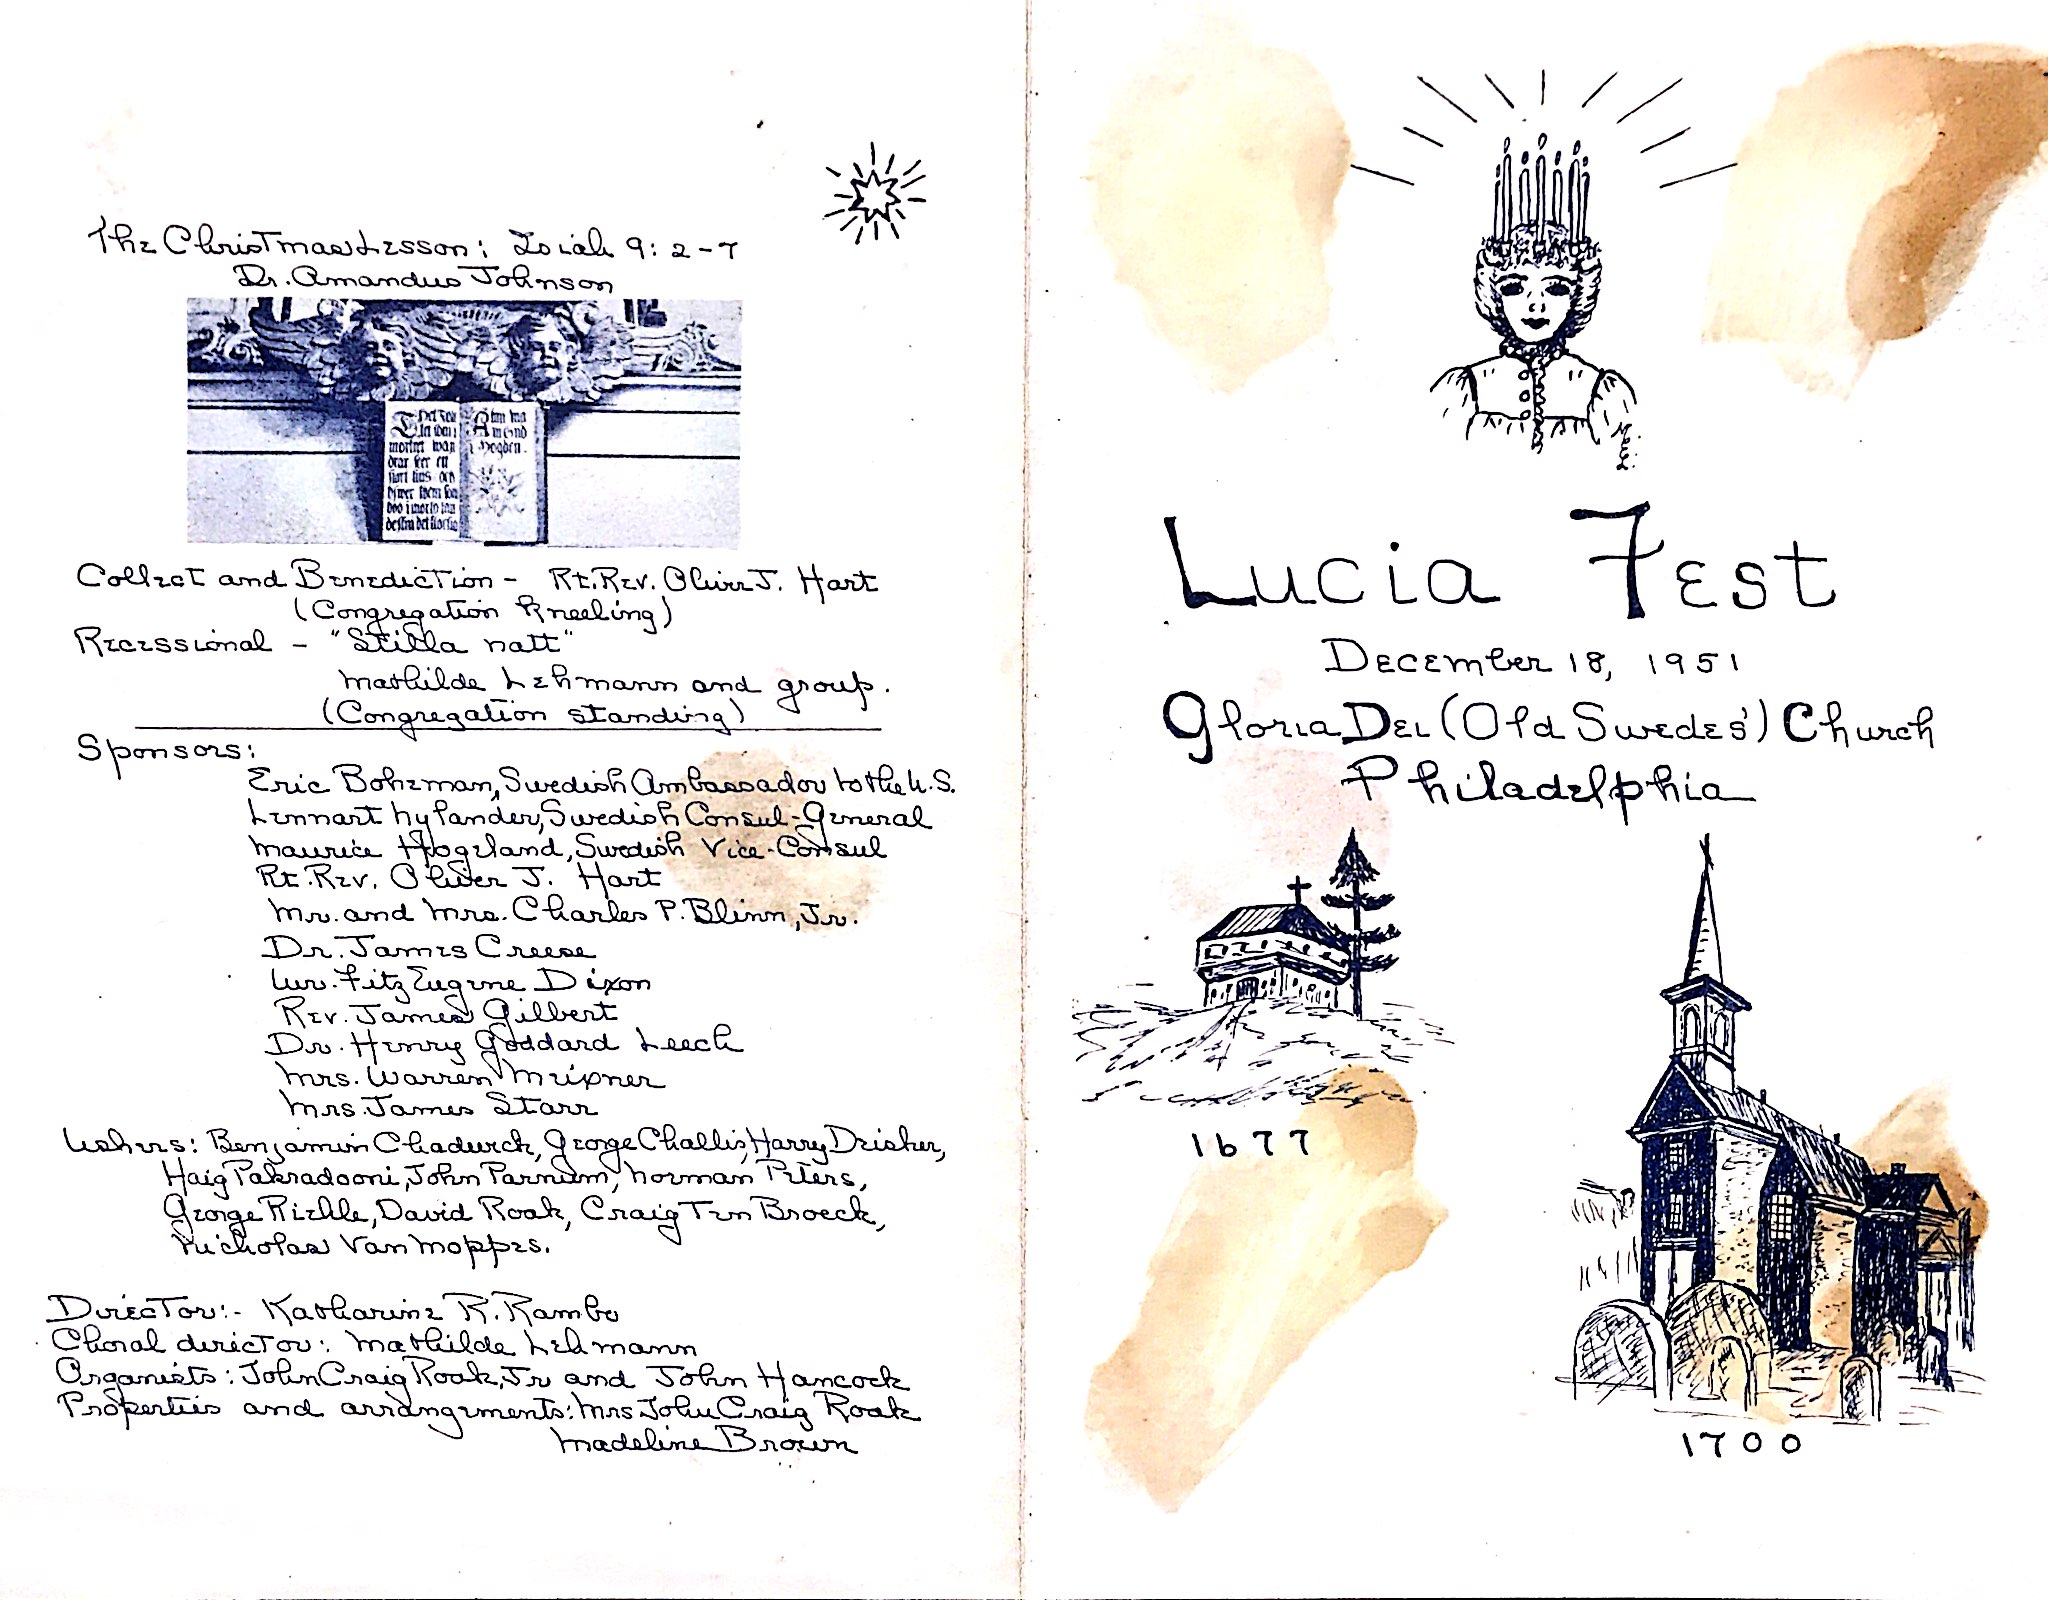 The Christmas Lesson: Isiah 9: 2-7
Dr. Amandus Johnson
Collect and Benediction - Rt. Rev. Oliver J. Hart
(Congregation Kneeling)
Recessional - "Stilla natt"
Mathilde Lehmann and group.
(Congregation standing)
Sponsors:
Eric Boheman, Swedish Ambassador to the U.S.
Lennart Nylander, Swedish Consul-General
Maurice Hogeland, Swedish Vice-Consul
Rt. Rev. Oliver J. Hart
Mr. and Mrs. Charles P. Blinn, Jr.
Dr. James Creese
Mr. Fitz Eugene Dixon
Rev. James Gilbert
Dr. Henry Goddard Leech
Mrs. Warren Meixner
Mrs. James Starr
Ushers: Benjamin Chadwick, George Challis, Harry Drisher,
Haig Pakradooni, John Parnum, Norman Peters,
George Riehle, David Roak, Craig Ten Broeck,
Nicholas Van Moppes.
Director:- Katharine R. Rambo
Choral director: Mathilde Lehmann
Organists: John Craig Roak, Jr and John Hancock
Properties and arrangements: Mrs John Craig Roak
Madeline Brown
Lucia Fest
December 18, 1951
Gloria Dei (Old Swedes') Church
Philadelphia
1677
1700